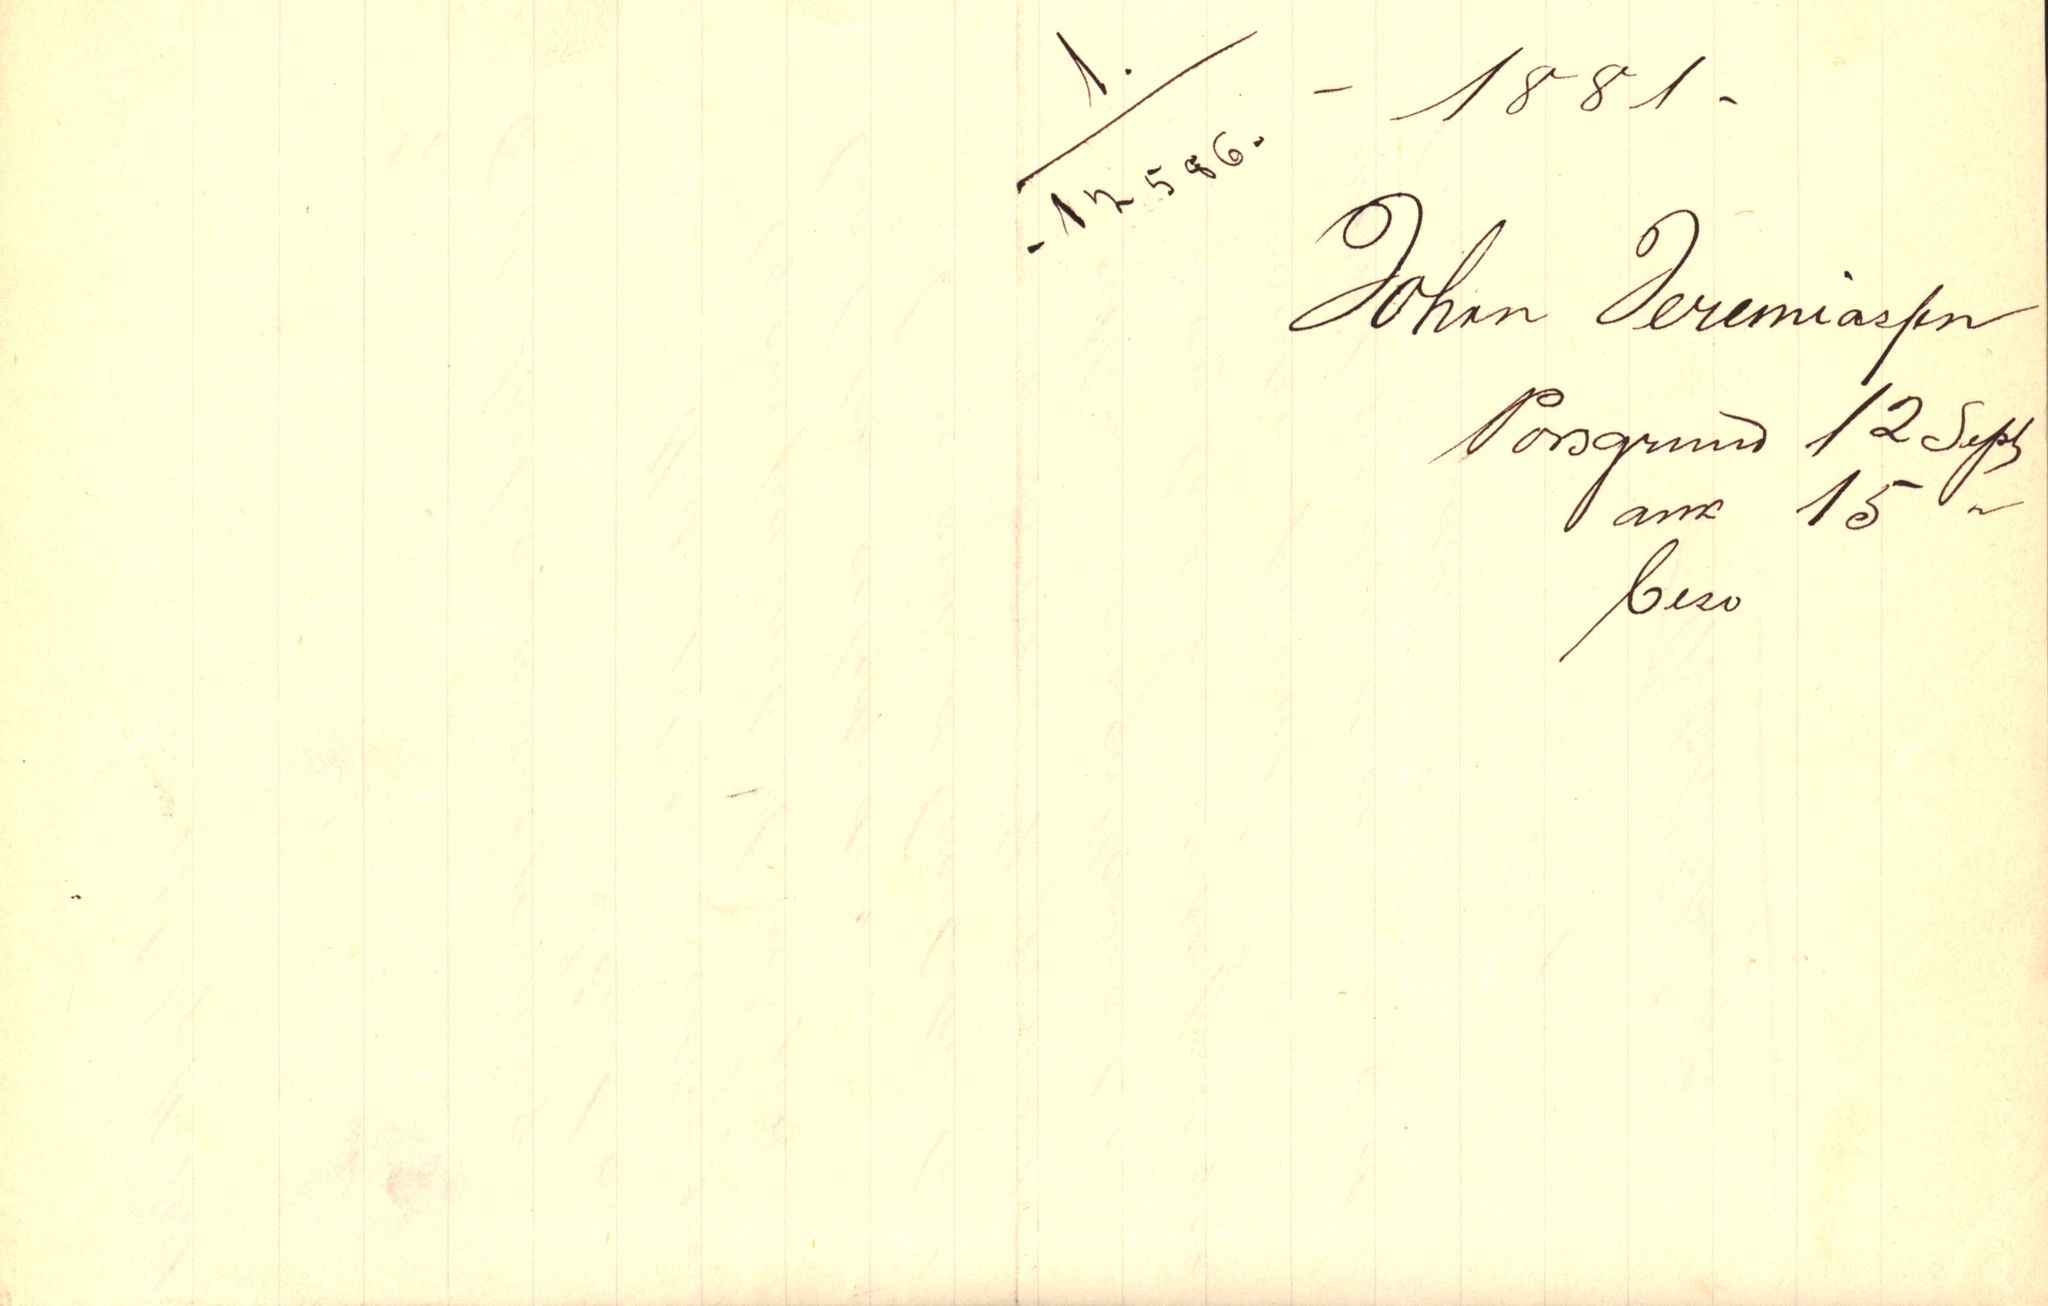 1.
- 12586.
- 1881 -
Johan Jeremiassen
Porsgrund 12 Sept
ank 15 "